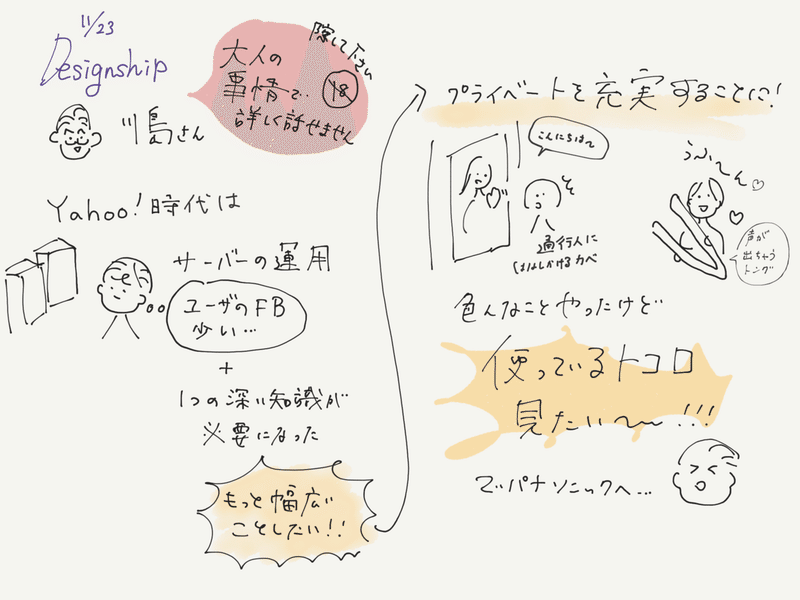 11/23
Designship
川島さん
大人の
事情で…
詳しく話せません
隠して下さい
18
Yahoo!時代は
サーバーの運用
ユーザのFB
少い…
+
1つの深い知識が
必要になった
もっと幅広い
ことしたい!!
プライベートを充実することに!
こんにちは〜
通行人に
はなしかけるカベ
うふ〜ん♡
声が
出ちゃう
トング
色んなことやったけど…
使っているトコロ
見たい〜〜!!!
でパナソニックへ…